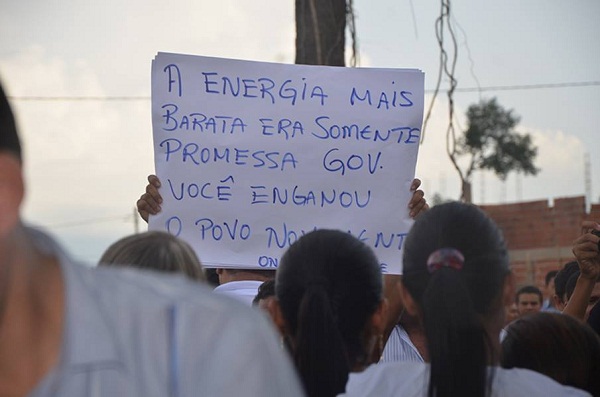 A ENERGIA MAIS
BARATA ERA SOMENTE
PROMESSA GOV.
VOCÊ ENGANOU
O POVO